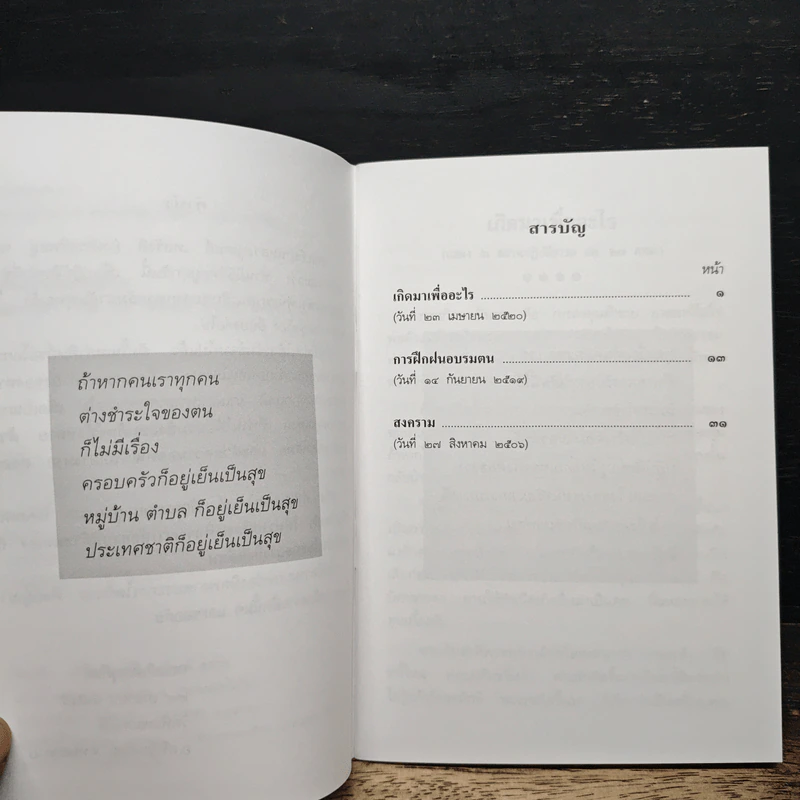 ถ้าหากคนเราทุกคน
ต่างชำระใจของตน
ก็ไม่มีเรื่อง
ครอบครัวก็อยู่เย็นเป็นสุข
หมู่บ้าน ตำบล ก็อยู่เย็นเป็นสุข
ประเทศชาติก็อยู่เย็นเป็นสุข
สารบัญ
หน้า
เกิดมาเพื่ออะไร ............................................................ ๑
(วันที่ ๒๓ เมษายน ๒๕๒๐)
การฝึกฝนอบรมตน ...................................................... ๑๓
(วันที่ ๑๔ กันยายน ๒๕๑๙)
สงคราม ........................................................................ ๓๑
(วันที่ ๒๗ สิงหาคม ๒๕๐๖)